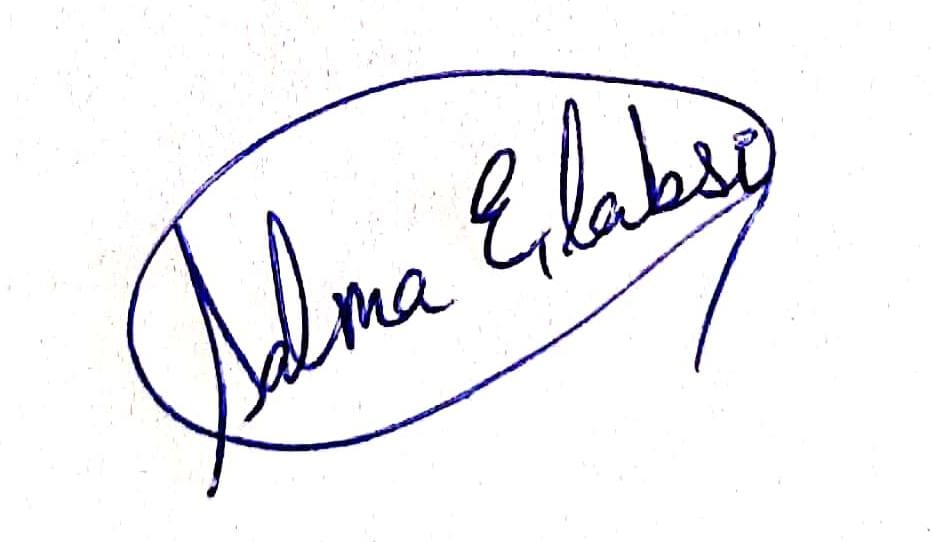 Salma Elabsi